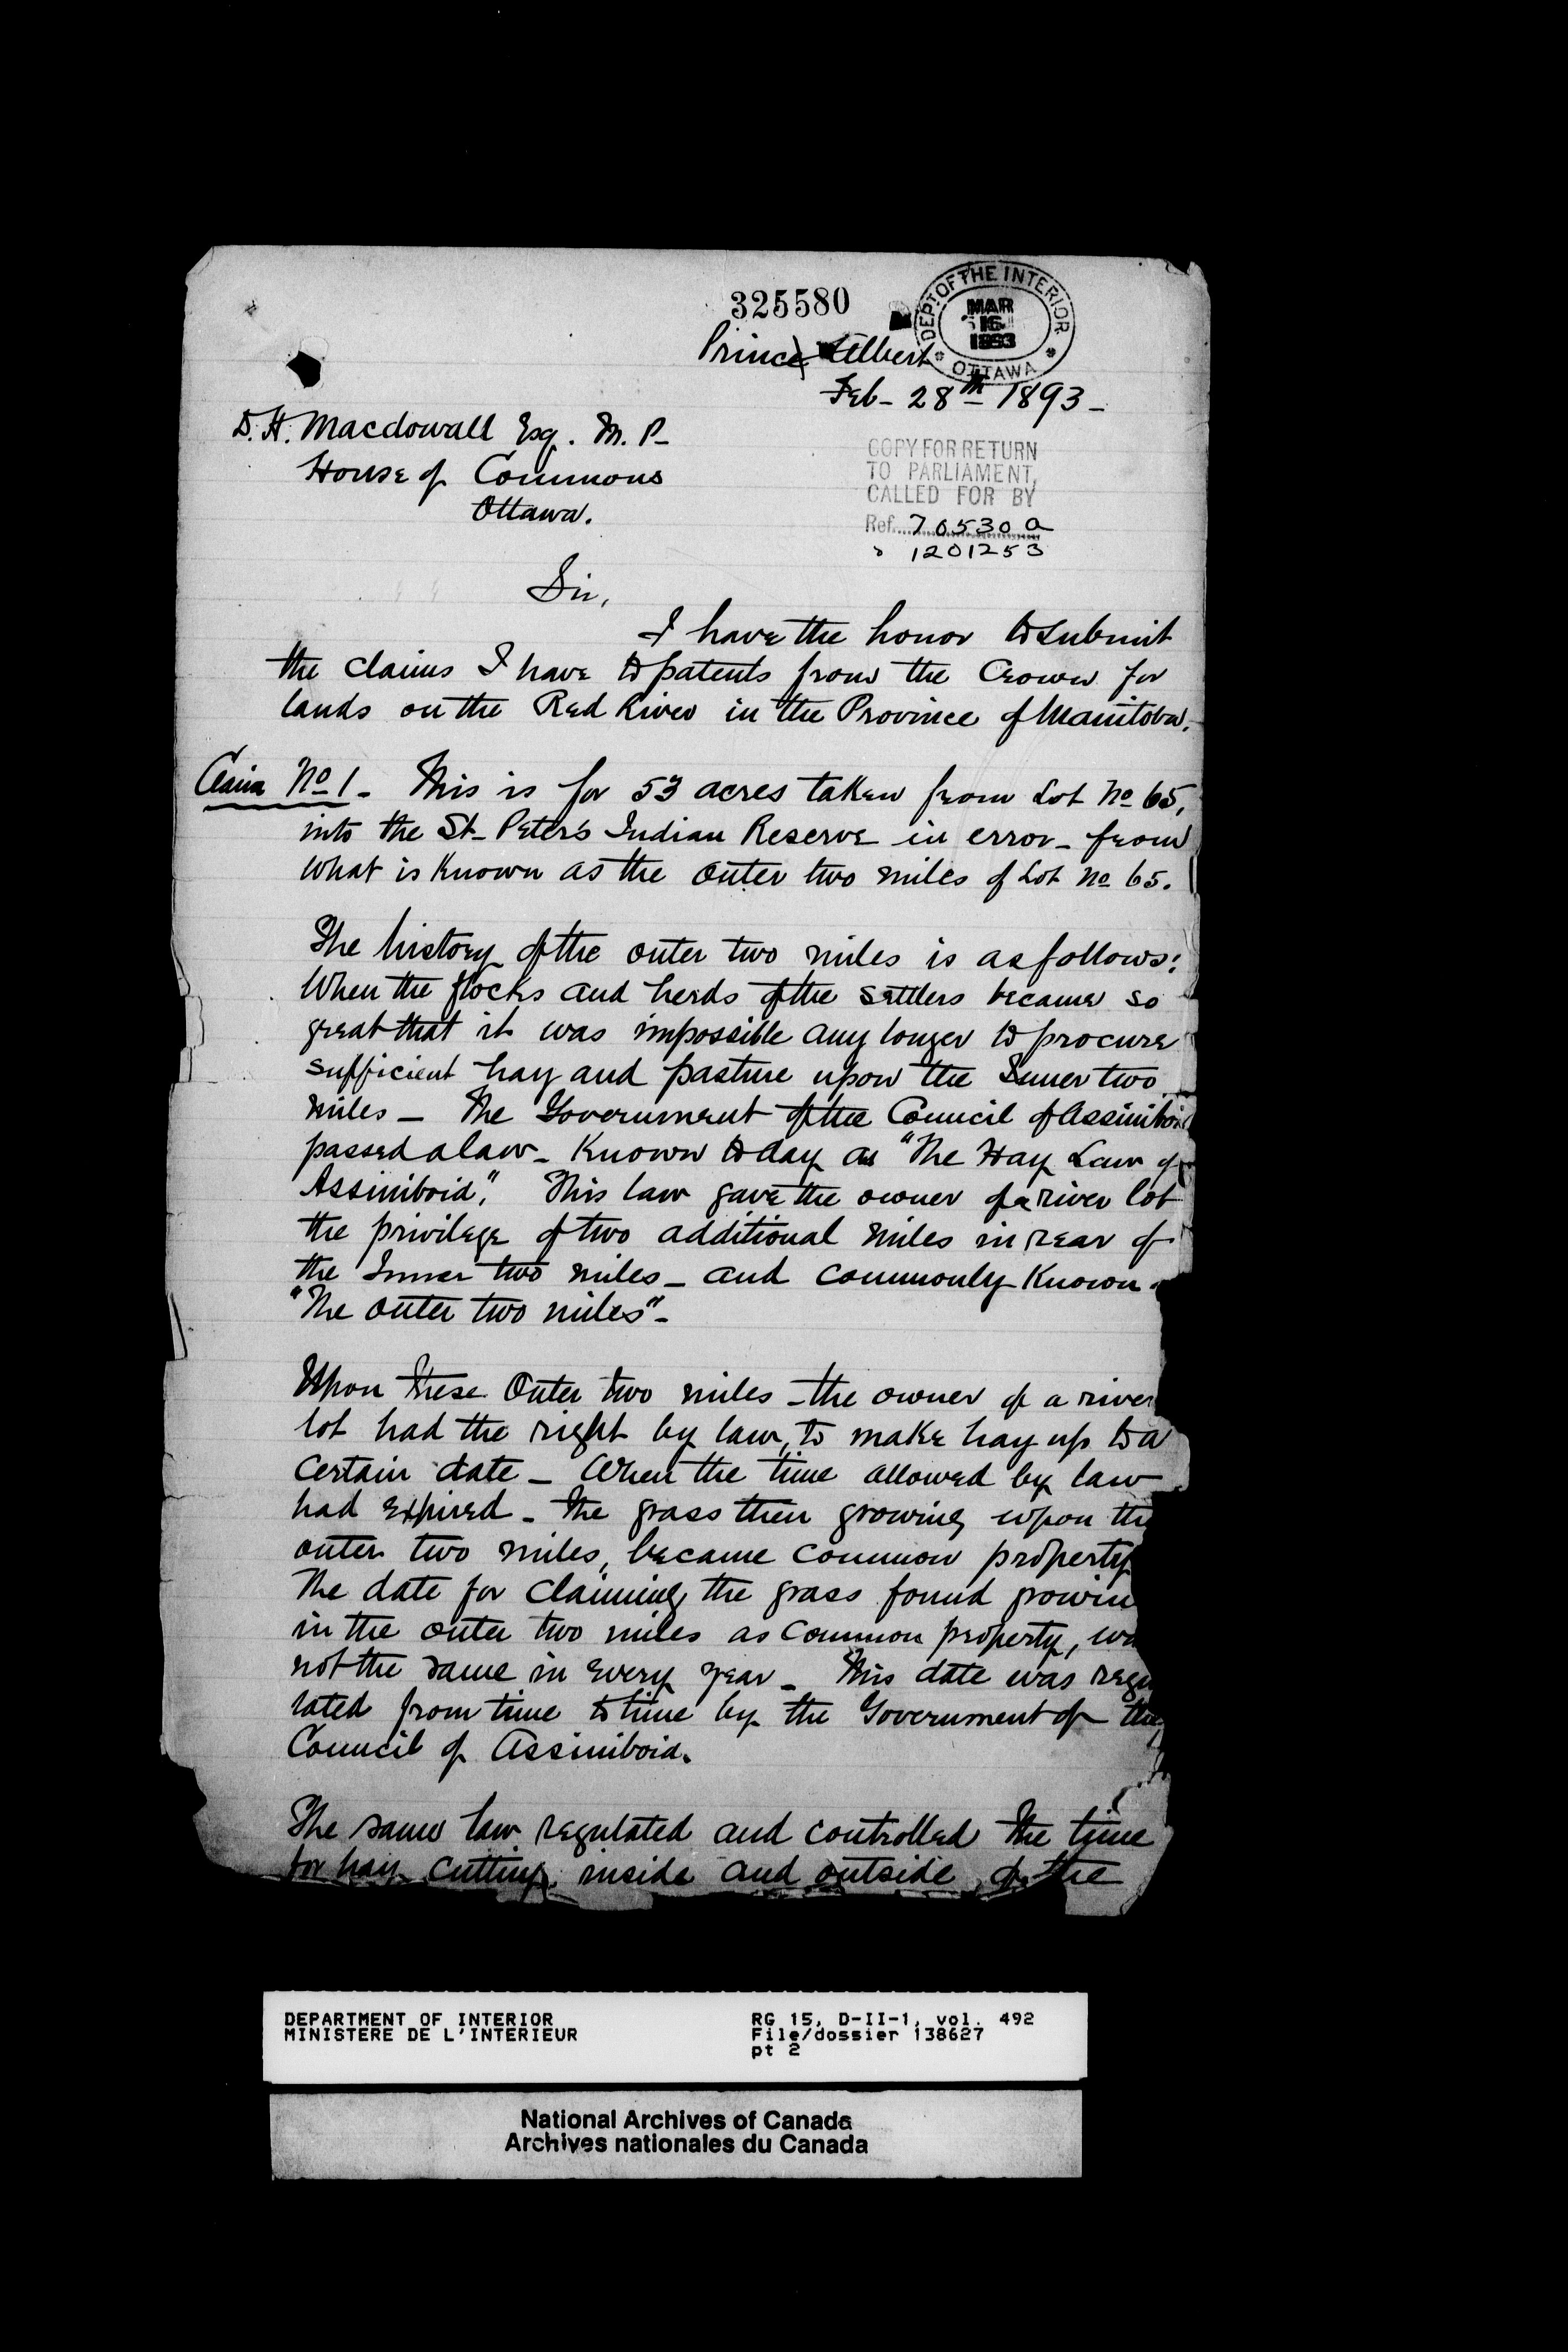 325580
DEPT. OF THE INTERIOR
MAR
16
1893
OTTAWA
Prince Albert
Feb - 28th 1893 -
D. H. Macdowall Esq. M. P -
House of Commons
Ottawa.
COPY FOR RETURN
TO PARLIAMENT,
CALLED FOR BY
Ref. 70530 a
" 1201253
Sir,
I have the honor to submit
the claims I have to patents from the Crown for
lands on the Red River in the Province of Manitoba.
Claim No 1 - This is for 53 acres taken from Lot No 65,
into the St - Peter's Indian Reserve in error - from
what is known as the outer two miles of Lot No 65.
The history of the outer two miles is as follows:
When the flocks and herds of the settlers became so
great that it was impossible any longer to procure
sufficient hay and pasture upon the Inner two
miles - The Government of the Council of Assiniboi
passed a law - known to day as "The Hay Law of
Assiniboid." This law gave the owner of a river lot
the privilege of two additional miles in rear of
the Inner two miles - and commonly known a
"The outer two miles" -
Upon these Outer two miles - the owner of a river
lot had the right by law, to make hay up to a
certain date - When the time allowed by law
had expired - the grass then growing upon the
outer two miles, became common property
The date for claiming the grass found growin
in the outer two miles as common property, wa
not the same in every year - This date was regu
lated from time to time by the Government of the
Council of Assiniboia.
The same law regulated and controlled the time
for hay cutting, inside and outside of the
DEPARTMENT OF INTERIOR
MINISTERE DE L'INTERIEUR
RG 15, D-II-1, vol. 492
File/dossier 138627
pt 2
National Archives of Canada
Archives nationales du Canada